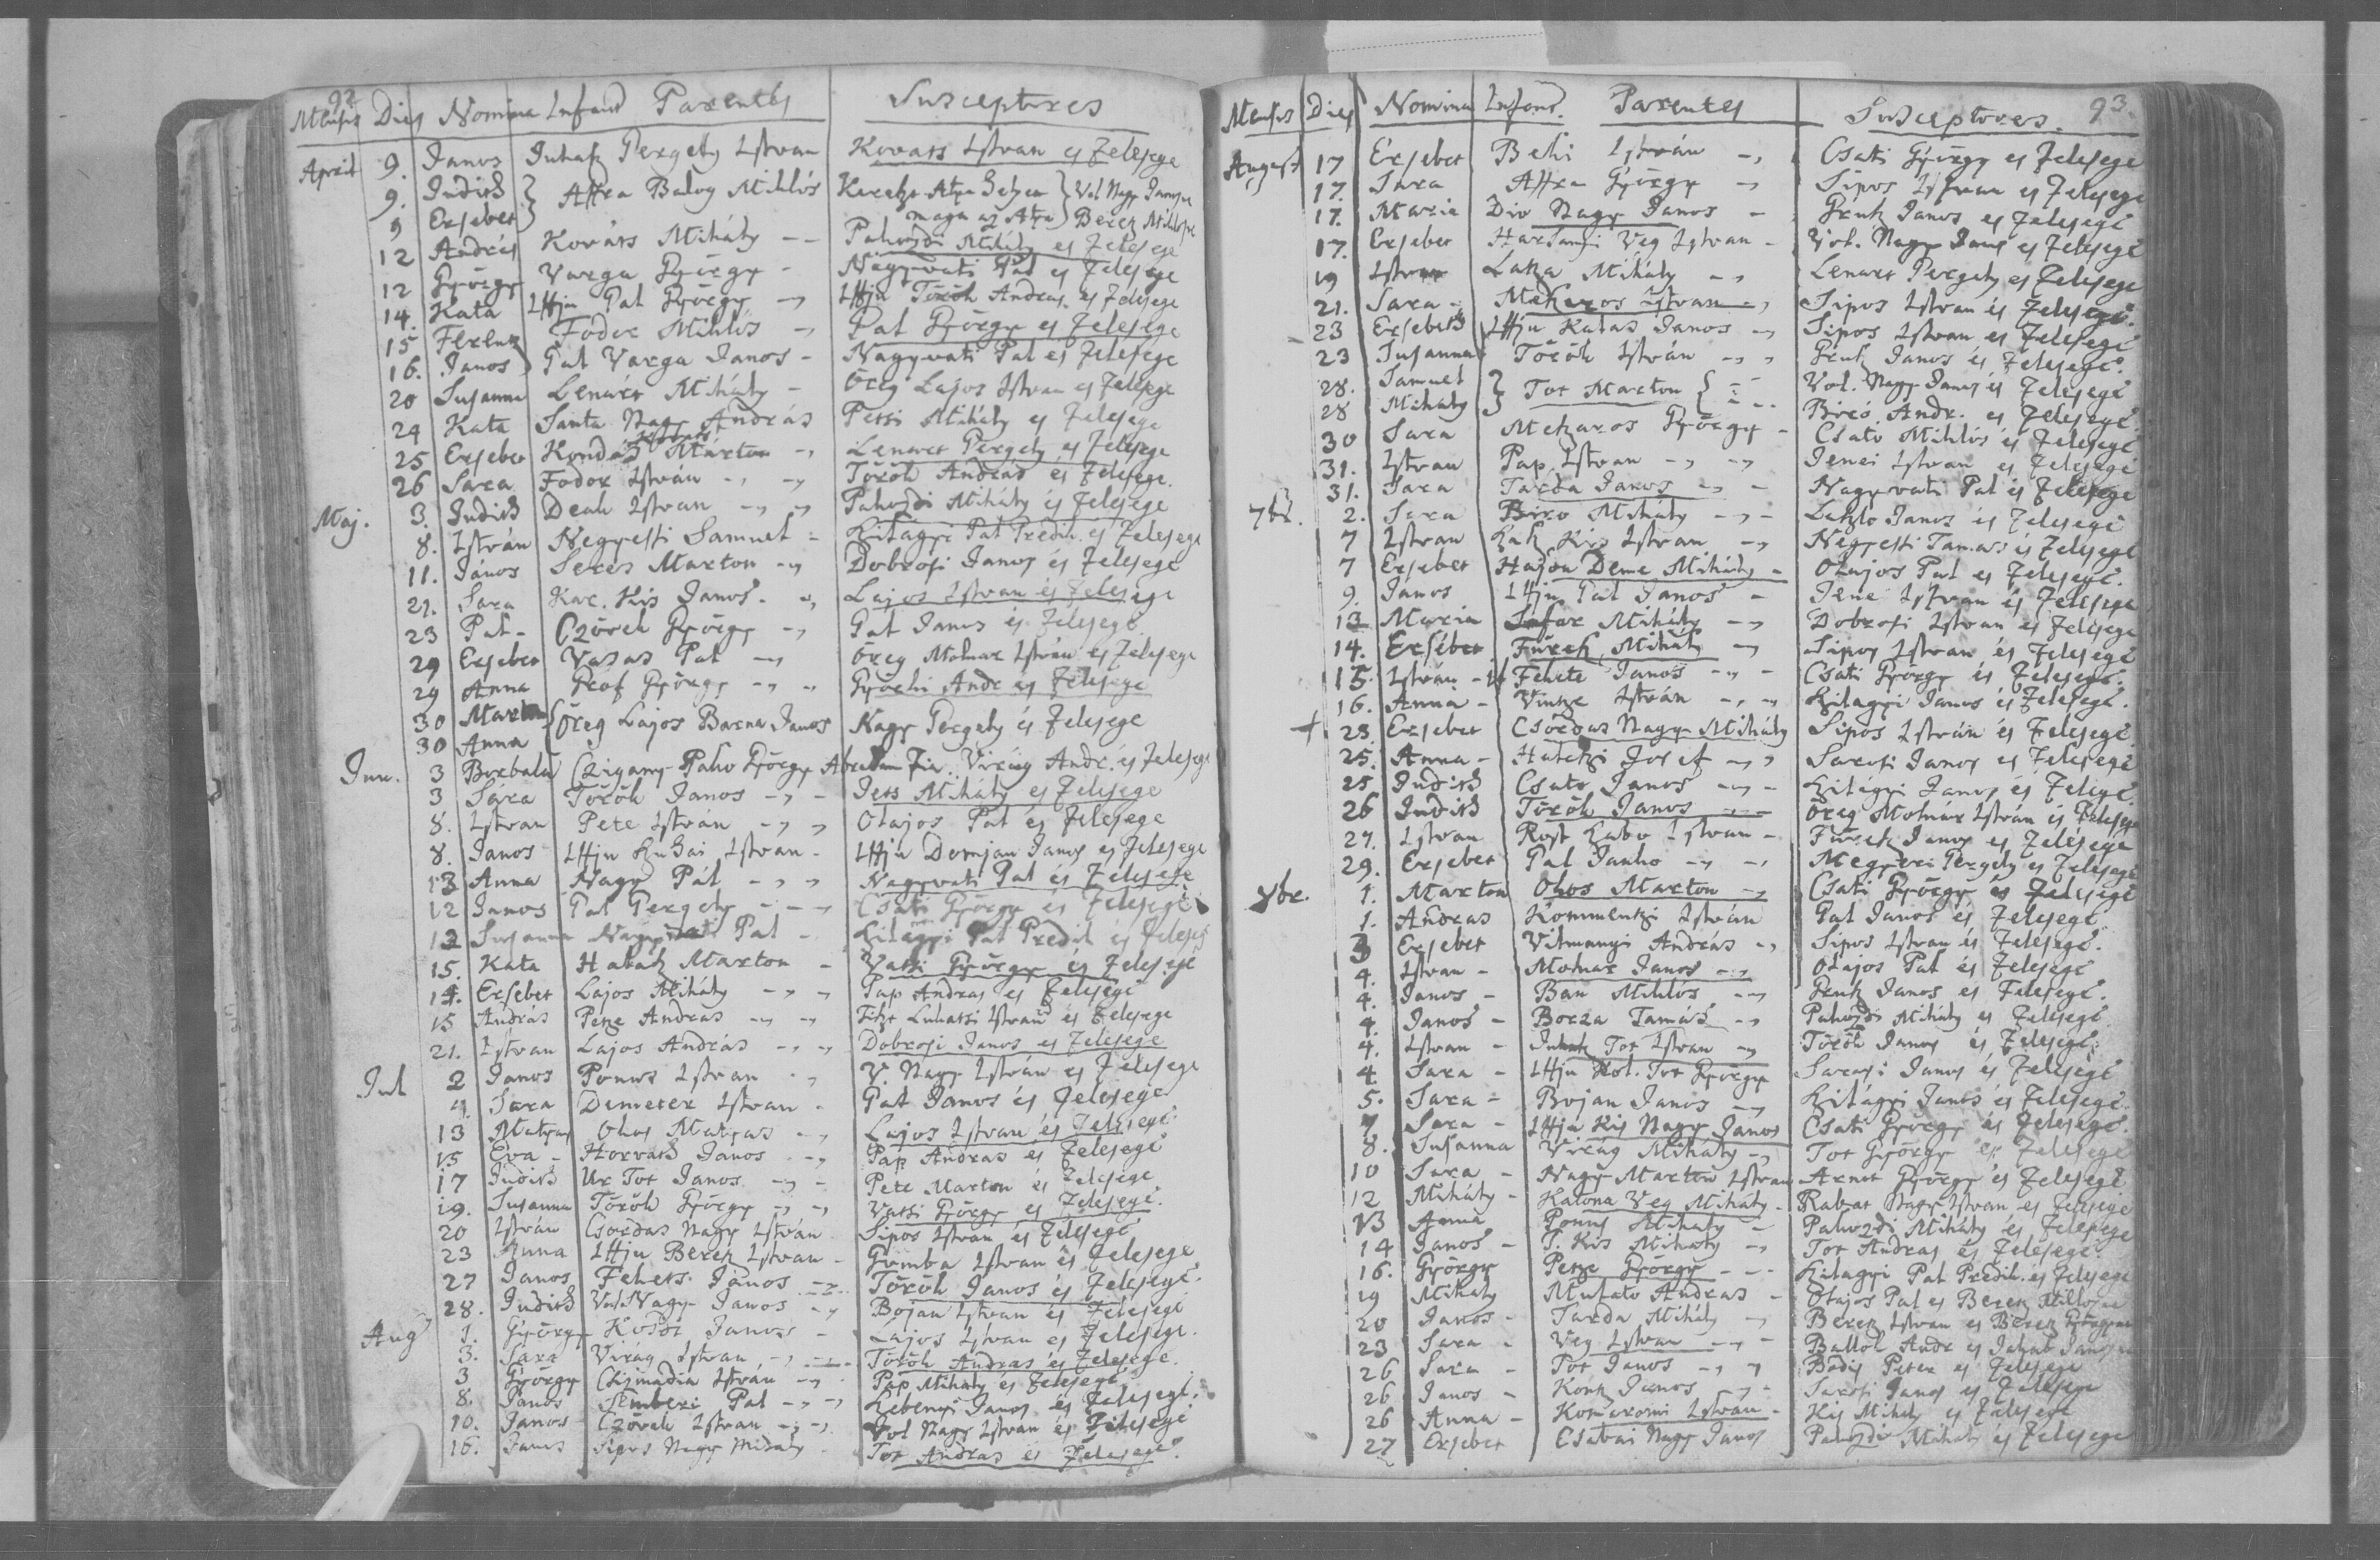 92
Mensis Dies Nomina Infant Parentes Susceptores
April 9. Janos Juhasz Gergely Istvan Kovats Istvan es Felesege
9. Judith Affra Balog Miklós
9 Ersebet maga az Atya Beretz
12 András Kováts Mihály Pahozdi Mihály es Felesege
12 György Varga György Nagyvati Pál es Felesege
14. Kata Iffju Pal György Iffju Török Andras es Felesege
15 Ferentz Fodor Miklós Gal György es Felesege
16. Janos Gal Varga Janos Nagyvati Pal es Felesege
20 Susanna Lenárt Mihály Öreg Lajos Istvan es Felesege
24 Kata Santa Nagy András Petsi Mihály es Felesege
25 Ersebet Kondás Márton Lenart Gergely es Felesege
26 Sara Fodor István Török András es Felesege
Maj. 3. Judith Deak Istvan Pahozdi Mihály és Felesege
8. István Negyesi Samuel Szilágyi Pal Predik. es Felesege
11. János Seres Marton Dobrosi Janos és Felesege
21. Sara Kar. Kis Janos Lajos Istvan és Felesege
23 Pal Czövek György Gal Janos és Felesege
29 Ersebet Vasas Pal Öreg Molnar István es Felesege
29 Anna Grof György Györki Andr és Felesege
30 Marton Öreg Lajos Barna Janos Nagy Gergely és Felesege
30 Anna
Jun. 3 Borbála Czigany Pako György Abraham Fia. Virág Andr. és Felesege
3 Sára Török Janos Jets Mihály es Felesege
8. Istvan Pete Istvan Olajos Pál és Felesege
8. Janos Iffju Istvan Iffju Domjan Janos es Felesege
13 Anna Nagy Pál Nagyvati Pal és Felesege
12 Janos Gal Gergely Csati György es Felesege
12 Susanna Pal Szilágyi Pal Predik és Felesege
15. Kata Marton Vatsi György és Felesege
14. Ersebet Lajos Mihály Pap Andras es Felesege
15 András Petze Andras Istvan és Felesege
21. Istvan Lajos András Dobrosi Janos es Felesege
Jul 2 Janos Istvan V. Nagy István es Felesege
4. Sara Demeter Istvan Gal Janos és Felesege
13 Matyas Okos Matyas Lajos Istvan és Felesege
15 Eva Horváth Janos Pap András és Felesege
17 Judith Ur Tot Janos Pete Marton és Felesege
19. Susanna Török György Vatsi György es Felesege
20 István Csordas Nagy István Sipos Istvan és Felesege
23 Anna Iffju Beretz Istvan Gömba Istvan és Felesege
27 Janos Fekete János Török Janos és Felesege
28. Judith Vol. Nagy Janos Bojan Istvan és Felesege
Aug 1. György Janos Lajos Istvan es Felesege
3. Sara Virág Istvan Török Andras és Felesege
3 György Csizmadia Istvan Pap Mihály és Felesege
8. Janos Semberi Pal Janos és Felesege
10. Janos Czövek Istvan Vol Nagy Istvan és Felesege
16. Janos Sipos Nagy Mihály Tot Andras és Felesege
93.
Mensis Dies Nomina Infant. Parentes Susceptores
August 17 Ersebet Beki István Csati György es Felesege
17. Sara Affra György Sipos Istvan es Felesege
17. Maria Dio Nagy Janos Janos es Felesege
17. Ersebet Harsanyi Veg Istvan Vol. Nagy Janos es Felesege
19 Istvan Latza Mihály Lenart Gergely es Felesege
21. Sara Meszaros Istvan Sipos Istvan és Felesege
23 Ersebeth Iffju Kalas Janos Sipos Istvan es Felesege
23 Susanna Török István Janos és Felesege
28. Samuel Tot Marton Vol. Nagy Janos és Felesege
28 Mihály Biró Andr. es Felesege
30 Sara Meszaros György Csato Miklós és Felesege
31. Istvan Pap Istvan Jenei Istvan es Felesege
31. Sara Tarda Janos Nagyvati Pal és Felesege
7br. 2. Sara Biro Mihály Laszlo Janos és Felesege
7 Istvan Kis Istvan Negyesi Tamas és Felesege
7 Ersebet Hajdu Deme Mihály Olajos Pal es Felesege
9. Janos Iffju Gal Janos Jene Istvan és Felesege
13 Maria Mihály Dobrosi Istvan es Felesege
14. Ersébet Fürek Mihály Sipos Istvan és Felesege
15. István Fekete Janos Csati György és Felesege
16. Anna Vintze István Szilagyi Janos és Felesege
+ 23. Ersebet Csordas Nagy Mihály Sipos István és Felesege
25. Anna Josef Sarosi Janos es Felesege
25 Judith Csato Janos Szilágyi Janos és Felesege
26 Judith Török Janos Öreg Molnár István és Felesege
27. Istvan Rost Szabo Istvan Fürek Janos es Felesege
29. Ersebet Pal Janko Megyeri Gergely es Felesege
8br. 1. Marton Okos Marton Csati György és Felesege
1. András István Gal Janos és Felesege
3 Ersebet Vilmanyi András Sipos Istvan és Felesege
4. Istvan Molnar Janos Olajos Pal és Felesege
4. Janos Ban Miklós Janos es Felesege
4. Janos Borza Tamás Pahozdi Mihály es Felesege
4. Istvan Tot Istvan Török Janos és Felesege
4. Sara Iffju Kol. Tot György Sarosi Janos és Felesege
5. Sara Bojan Janos Szilágyi Janos és Felesege
7 Sara Iffju Kis Nagy Janos Csati György és Felesege
8. Susanna Virág Mihály Tot György es Felesege
10 Sara Nagy Marton Istvan Arnot György és Felesege
12 Mihály Katona Veg Mihály Nagy Istvan es Felesege
13 Anna Mihaly Pahozdi Mihály és Felesege
14 Janos T. Kis Mihály Tot Andras és Felesege
16. György Petze György Szilagyi Pal Predik. és Felesege
19 Mihály Mulato Andras Olajos Pal es Beretz
20 Janos Tarda Mihály Beretz Istvan es Beretz
23 Sara Veg Istvan Andr es Jakab
26 Sara Tot Janos Bodis Peter es Felesege
26 Janos Kontz Janos Sarosi Janos es Felesege
26 Anna Komaromi Istvan Kis Mihaly es Felesege
27 Ersebet Csabai Nagy Janos Pahozdi Mihaly es Felesege